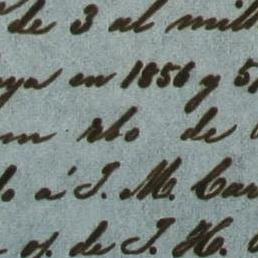 de 3 al mil
ya en 1856 y 5
rbo de
o á J. M. Car
y. de J. H.